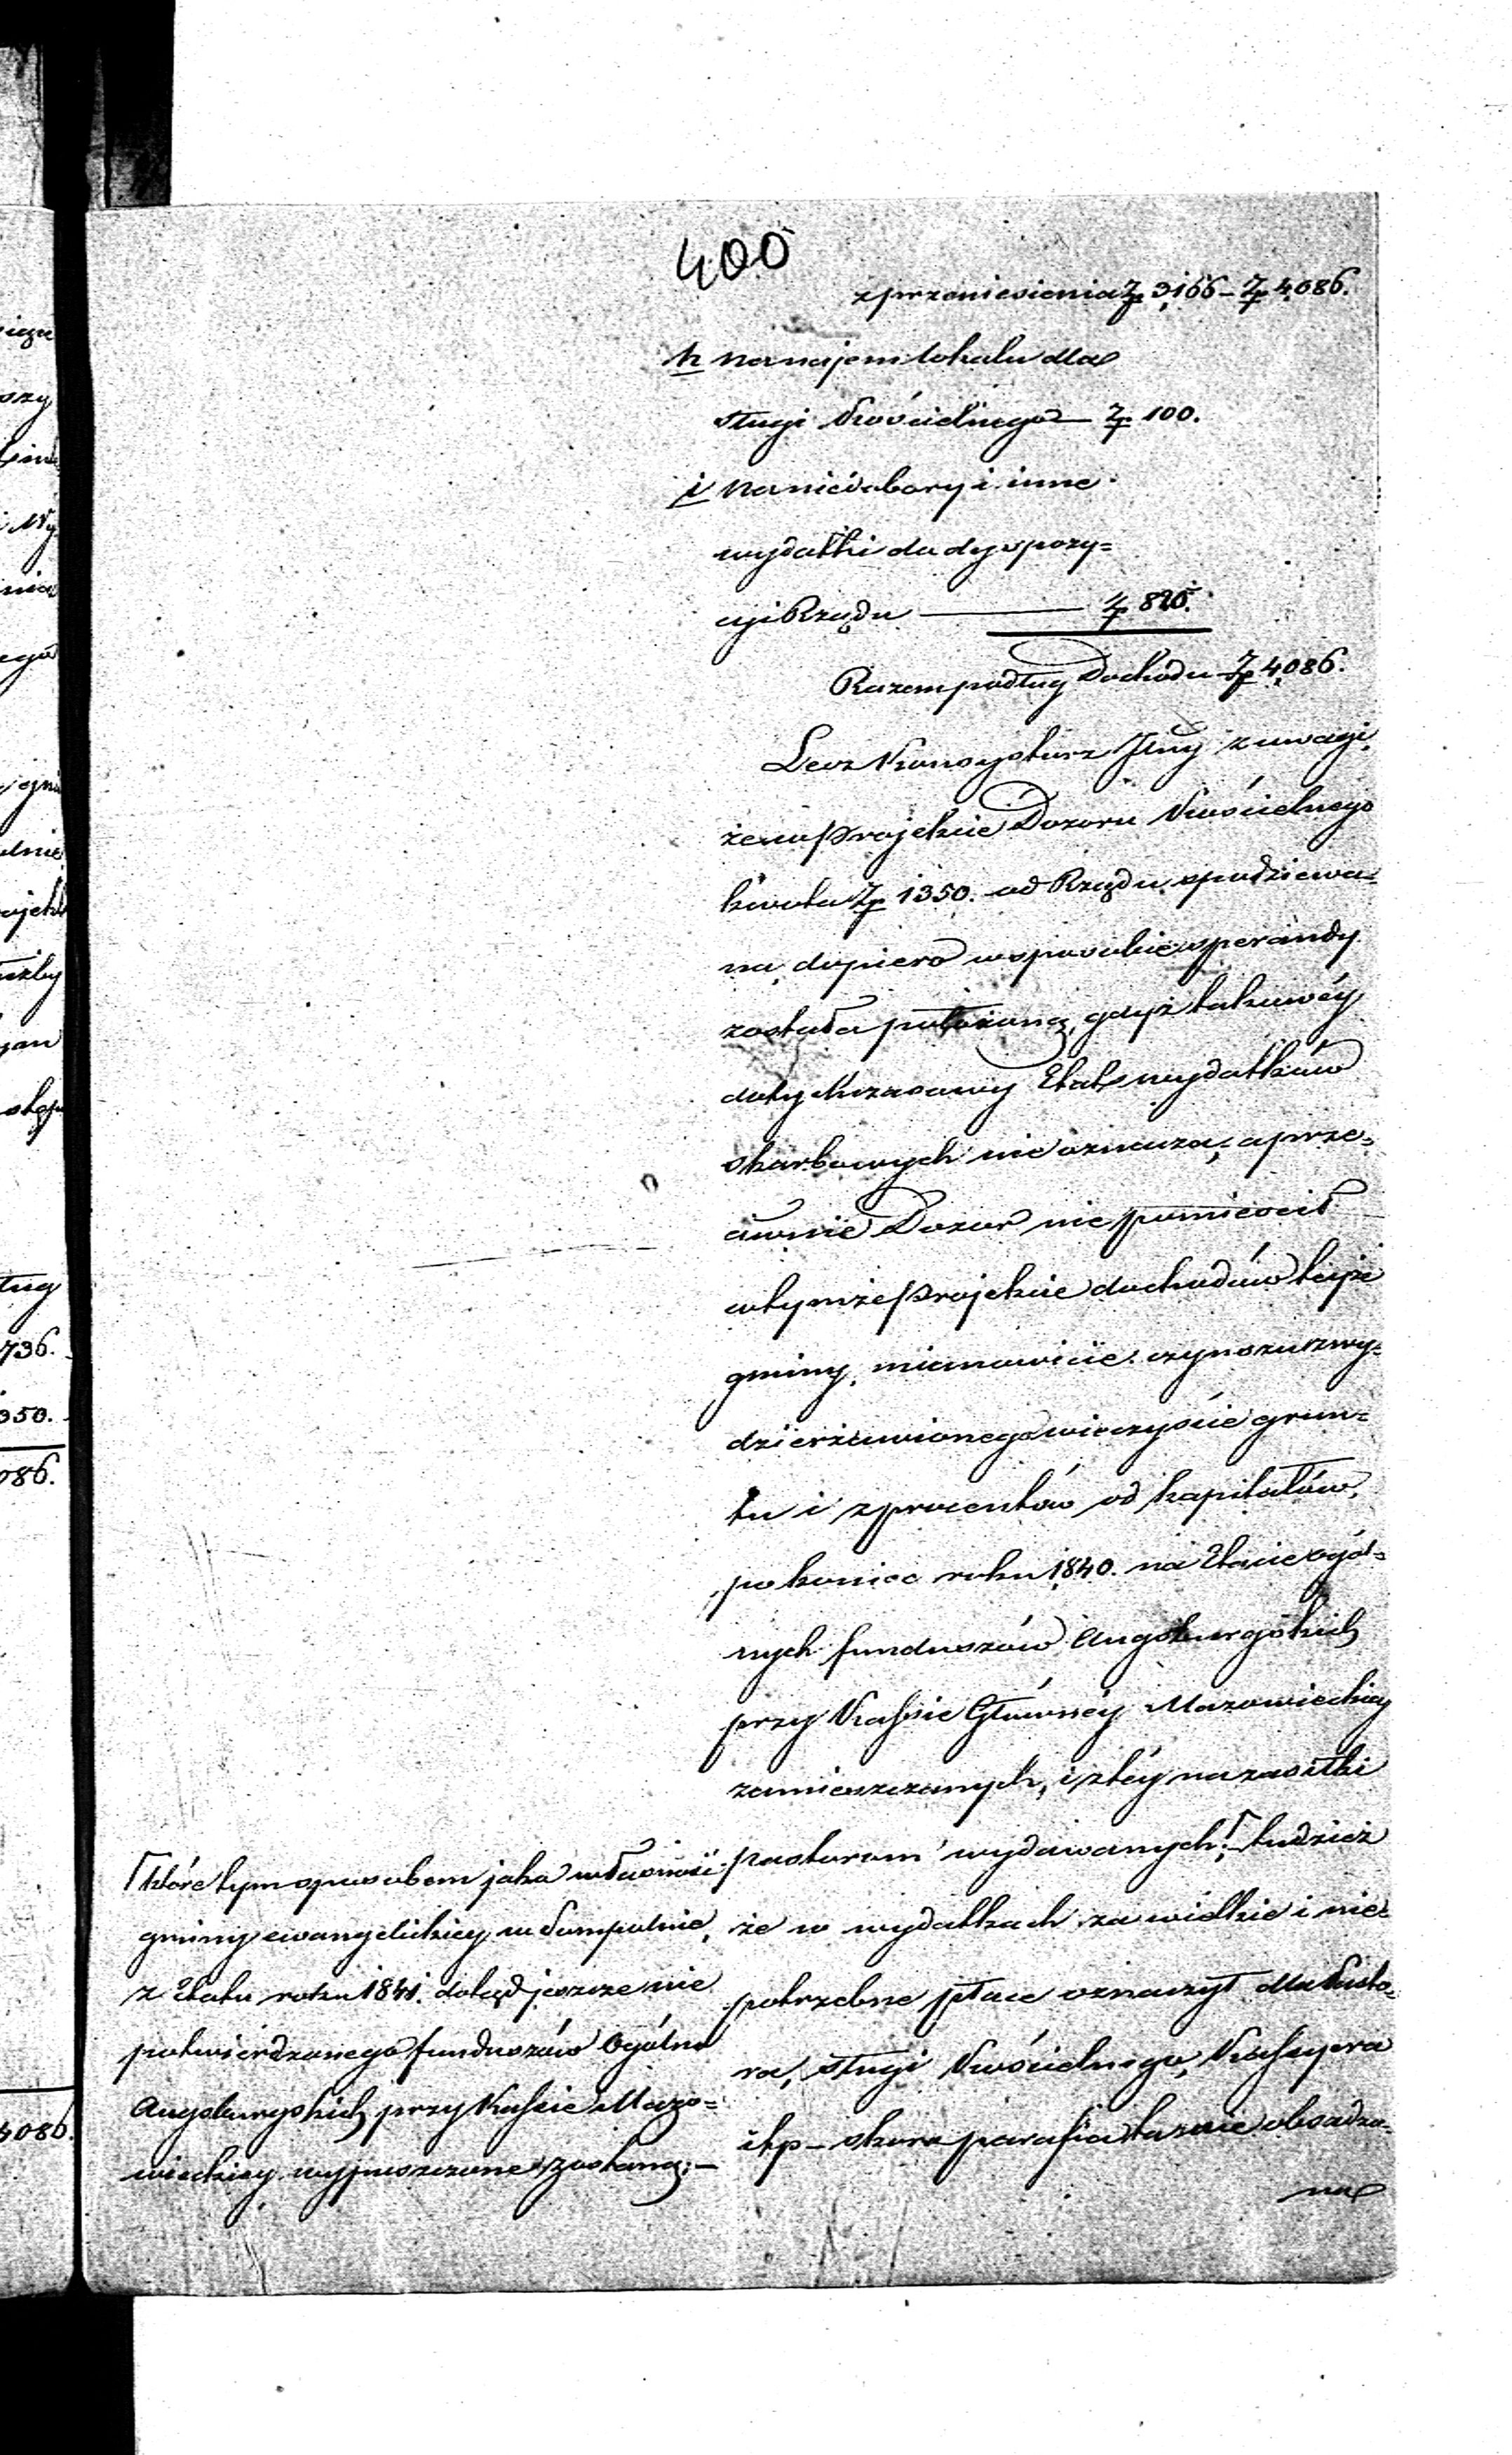 400
z przeniesienia Zp 3,166 – Zp 4,086.
h na najem lokalu dla
sługi Kościelnego — Zp 100.
i na niedobory i inne
wydatki do dyspozy=
cyi Rządu — Zp 820.
Razem podług Dochodu Zp 4,086.
Lecz Konsystorz Jlny z uwagi,
że w Projekcie Dozoru Kościelnego
kwota Zp 1350. od Rządu spodziewa=
na, dopiero w sposobie sperandy
została położoną, gdyż takowéy
dotychczasowy Etat wydatków
skarbowych nie oznacza; a prze=
ciwnie Dozór nie pomieścił
w tymże Projekcie dochodów tejże
gminy, mianowicie: czynszu z wy=
dzierżawionego wieczyście grun=
tu i z procentów od kapitałów,
po koniec roku 1840. na Etacie ogól=
nych funduszów Augsburgskich
przy Kassie Głównéy Mazowieckiey
zamieszczanych, i z téy na zasiłki
pastorom wydawanych; tudzież
że w wydatkach za wielkie i nie=
potrzebne płace oznaczył dla Kanto=
ra, sługi Kościelnego, Kassyera
itp – skoro parafia ta znie obsadzo=
na
które tym sposobem jako własność
gminy ewangelickiey w Sompolnie,
z Etatu roku 1841. dotąd jeszcze nie
potwierdzonego funduszów Ogólno
Augsburgskich przy Kassie Mazo=
wieckiey wypuszczone zostaną; –
736.
350.
086.
4086.